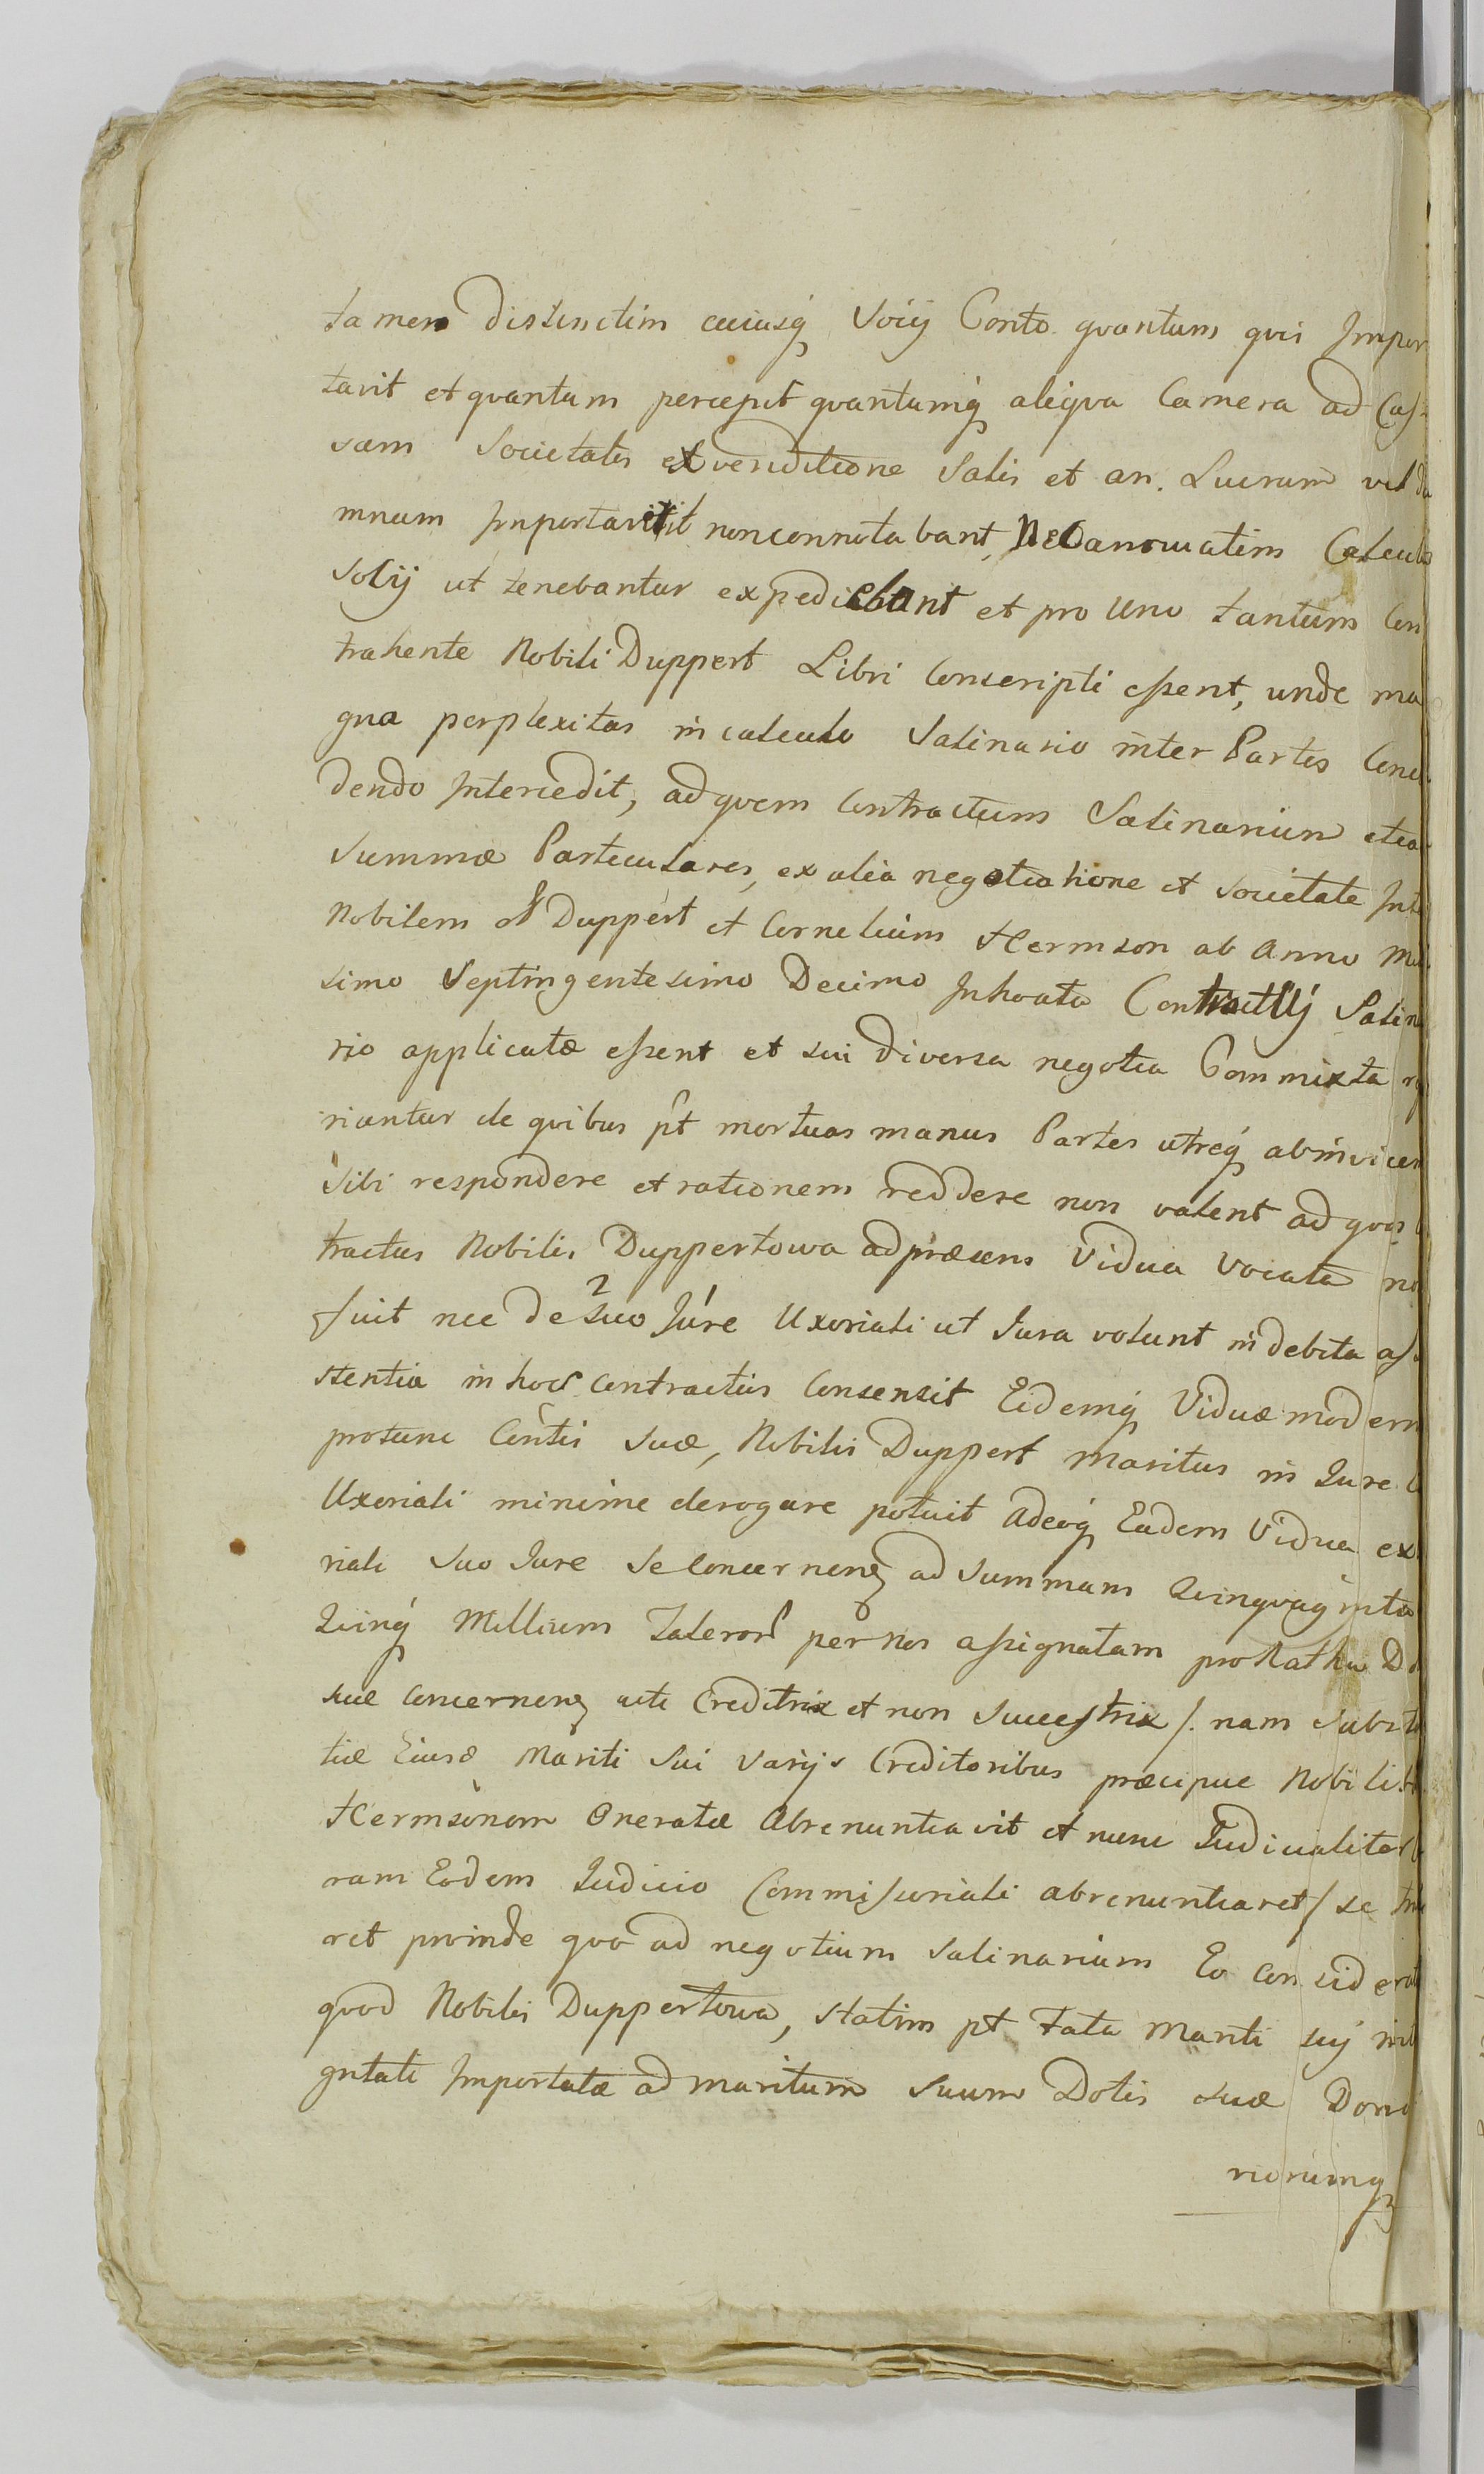 tamen distinctim cuiusq Socij Conto quantum qui Impor
tavit et quantum percepit quantumq aliqva Camera ad Cas
sam Societatis ex venditione Salis et an. Lucrum vel da
mnum Importavit non connotabant, Nec annuatim Calculos
Socij ut tenebantur expediebant et pro Uno tantum Con
trahente Nobili Duppert Libri Conscripti essent, unde ma
gna perplexitas in calculo Salinario inter Partes
dendo Intercedit, ad quem Contractum Salinarium etia
Summæ Particulares, ex alia negotiatione et societate Inte
Nobilem Duppert et Cornelium Hermson ab Anno Mil
simo Septingentesimo Decimo Inhoata Contractui Salina
rio applicatæ essent et sui diversa negotia Commixta
riantur de quibus pt mortuas manus Partes utreq abinvicem
Sibi respondere et rationem reddere non valent ad quos
tractus Nobilis Duppertowa ad præsens Vidua Vocata no
fuit nec de suo Jure Uxoriali ut Jura volunt in debita as
stentia in hos contractus Consensit Eidemq Viduæ modern
protunc Conti suæ, Nobilis Duppert Maritus in Jure
Uxoriali minime derogare potuit Adeoq Eadem Vidua ex
riali Suo Jure Se Concernen ad Summam Quinquaginta
Quinq Millium Taleror per nos assignatam pro Ratha Do
suæ Concernen uti Creditrix et non Successtrix /. nam Substa
tiæ Eiusd Mariti Sui Varijs Creditoribus præcipue Nobili
Hermsonom Oneratæ Abrenuntiavit et nunc Judicialiter
ram Eodem Judicio Commissoriali abrenuntiaret / se
ret proinde quo ad negotium Salinarium Eo Considerat
quod Nobilis Duppertowa, statim pt Fata Mariti sui
gritati Importatæ ad maritum Suum Dotis suæ
riorumq